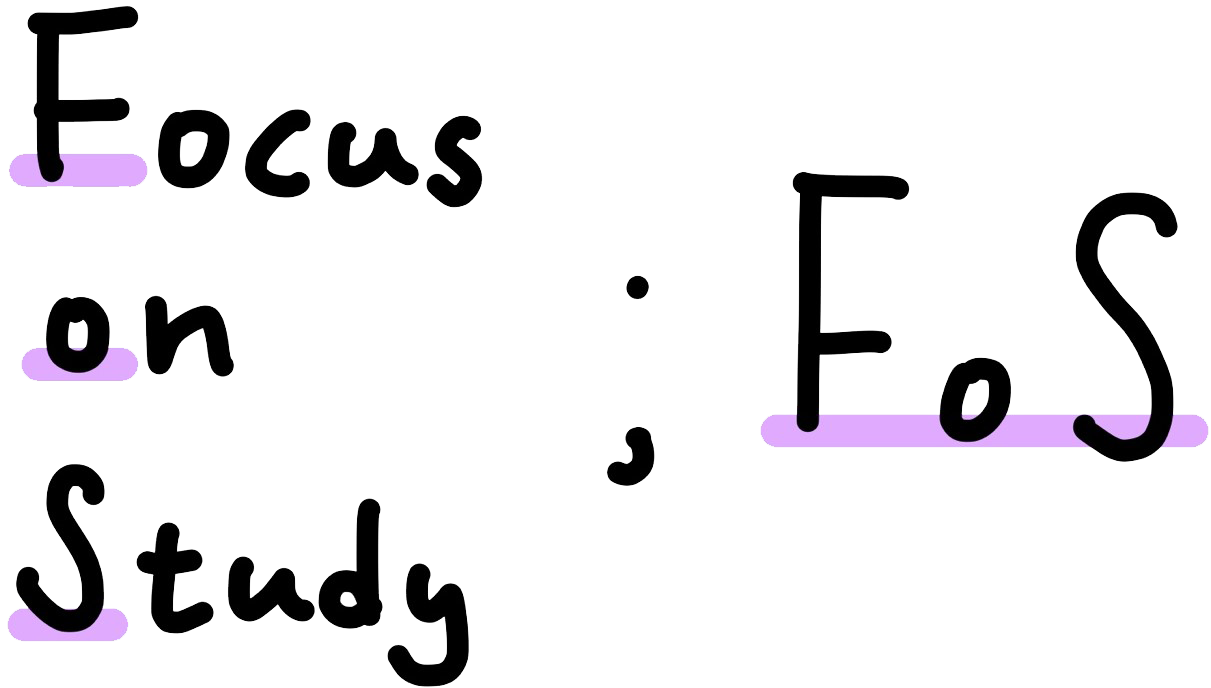 Focus
on
Study
; FoS